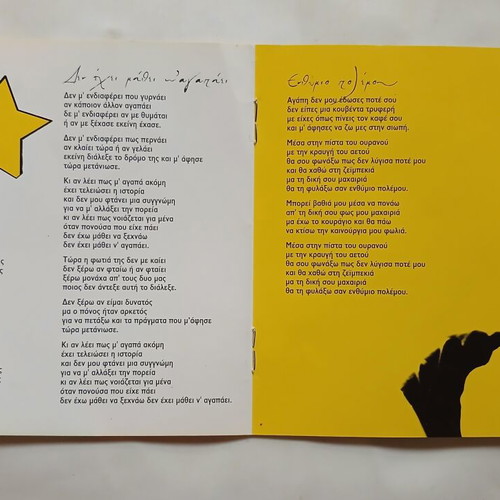 Δεν έχει μάθει ν' αγαπάει
Δεν μ' ενδιαφέρει που γυρνάει
αν κάποιον άλλον αγαπάει
δε μ' ενδιαφέρει αν με θυμάται
ή αν με ξέχασε εκείνη έχασε.
Δεν μ' ενδιαφέρει πως περνάει
αν κλαίει τώρα ή αν γελάει
εκείνη διάλεξε το δρόμο της και μ' άφησε
τώρα μετάνιωσε.
Κι αν λέει πως μ' αγαπά ακόμη
έχει τελειώσει η ιστορία
και δεν μου φτάνει μια συγγνώμη
για να μ' αλλάξει την πορεία
κι αν λέει πως νοιάζεται για μένα
όταν πονούσα που είχε πάει
δεν έχω μάθει να ξεχνάω
δεν έχει μάθει ν' αγαπάει.
Τώρα η φωτιά της δεν με καίει
δεν ξέρω αν φταίω ή αν φταίει
ξέρω μονάχα απ' τους δυο μας
ποιος δεν άντεξε αυτή το διάλεξε.
Δεν ξέρω αν είμαι δυνατός
μα ο πόνος ήταν αρκετός
για να πετάξω και τα πράγματα που μ'άφησε
τώρα μετάνιωσε.
Κι αν λέει πως μ' αγαπά ακόμη
έχει τελειώσει η ιστορία
και δεν μου φτάνει μια συγγνώμη
για να μ' αλλάξει την πορεία
κι αν λέει πως νοιάζεται για μένα
όταν πονούσα που είχε πάει
δεν έχω μάθει να ξεχνάω δεν έχει μάθει ν' αγαπάει.
Ενθύμιο πολέμου
Αγάπη δεν μου έδωσες ποτέ σου
δεν είπες μια κουβέντα τρυφερή
με είχες όπως πίνεις τον καφέ σου
και μ' άφησες να ζω μες στην σιωπή.
Μέσα στην πίστα του ουρανού
με την κραυγή του αετού
θα σου φωνάξω πως δεν λύγισα ποτέ μου
και θα χαθώ στη ζεϊμπεκιά
μα τη δική σου μαχαιριά
θα τη φυλάξω σαν ενθύμιο πολέμου.
Μπορεί βαθιά μου μέσα να πονάω
απ' τη δική σου φως μου μαχαιριά
μα έχω το κουράγιο και θα πάω
να κτίσω την καινούργια μου φωλιά.
Μέσα στην πίστα του ουρανού
με την κραυγή του αετού
θα σου φωνάξω πως δεν λύγισα ποτέ μου
και θα χαθώ στη ζεϊμπεκιά
μα τη δική σου μαχαιριά
θα τη φυλάξω σαν ενθύμιο πολέμου.